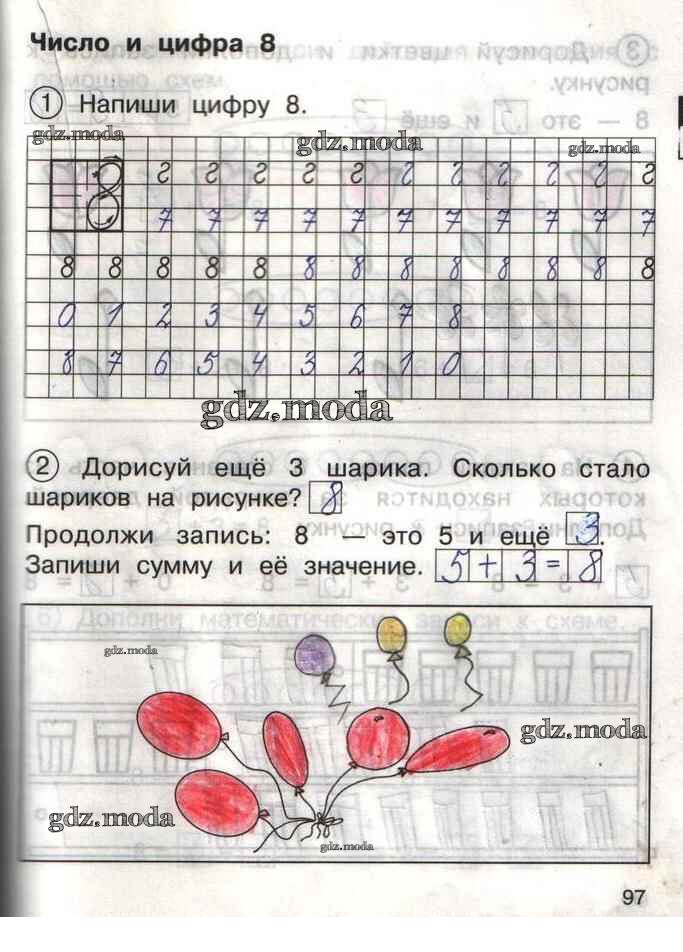 Число и цифра 8
1 Напиши цифру 8.
gdz.moda gdz.moda gdz.moda
8 2 2 2 2 2 2 2 2 2 2 2
7 7 7 7 7 7 7 7 7 7 7
8 8 8 8 8 8 8 8 8 8 8 8 8
0 1 2 3 4 5 6 7 8
8 7 6 5 4 3 2 1 0
gdz.moda
2 Дорисуй ещё 3 шарика. Сколько стало
шариков на рисунке? 8
Продолжи запись: 8 — это 5 и ещё 3.
Запиши сумму и её значение. 5 + 3 = 8
gdz.moda
gdz.moda
gdz.moda
gdz.moda
97